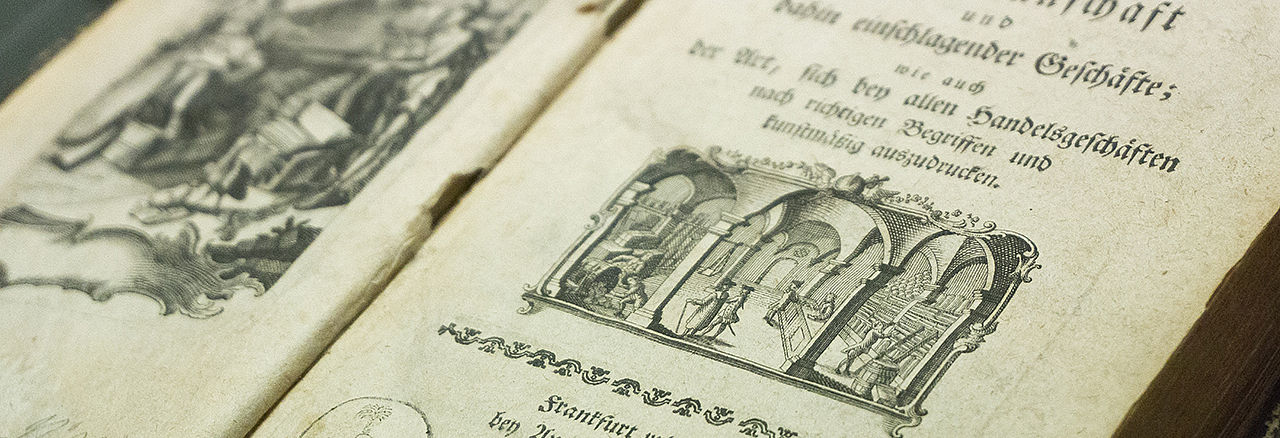 und
dahin einschlagender Geschäfte;
wie auch
der Art, sich bey allen Handelsgeschäften
nach richtigen Begriffen und
kunstmäßig auszudrucken.
Frankfurt
bey